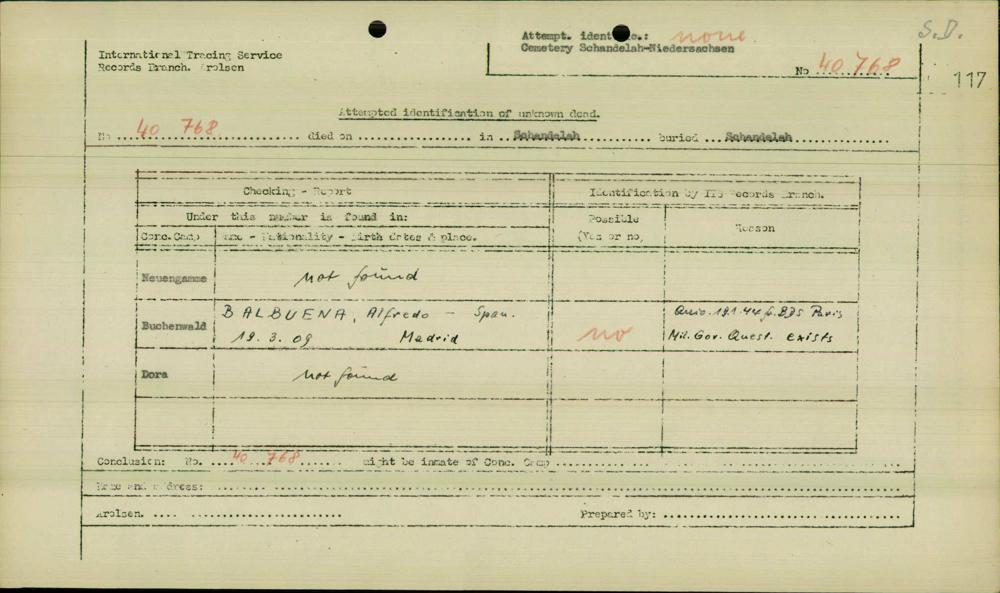 S.D.
Attempt. ident No.: none.
Cemetery Schandelah-Niedersachsen
International Tracing Service
Records Branch. Arolsen
No 40 768
117
Attempted identification of unknown dead.
No 40 768 died on in Schandelah buried Schandelah
Checking - Report
Identification by ITS Records Branch.
Under this number is found in:
Possible (Yes or no)
Reason
Conc. Camp
Name - Nationality - Birth dates & place.
Neuengamme not found
Buchenwald BALBUENA, Alfredo - Span. 19.1.44 BDS Paris
19.3.09 Madrid no Mil. Gov. Quest. exists
Dora not found
Conclusion: No. 40 768 might be inmate of Conc. Camp
Name and address:
Arolsen.
Prepared by: